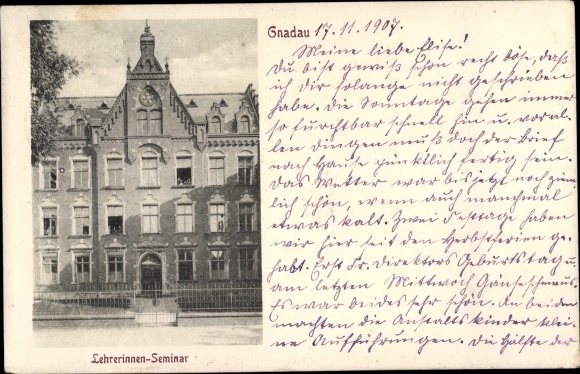 Gnadau 17.11.1907.
Meine liebe Elise!
Du bist gewiß schon recht böse, daß
ich dir solange nicht geschrieben
habe. Die Sonntage gehen immer
so furchtbar schnell hin u. voral-
len dingen muß doch der Brief
nach Hause pünktlich fertig sein.
Das Wetter war bis jetzt noch ziem-
lich schön, wenn auch manchmal
etwas kalt. Zwei Festtage haben
wir hier seit den Herbstferien ge-
habt. Erst Fr. Direktors Geburtstag u.
am letzten Mittwoch Gänseschmaus.
Es war beides sehr schön. An beiden
machten die Anstaltskinder klei-
ne Aufführungen. Die Hälfte der
Lehrerinnen-Seminar